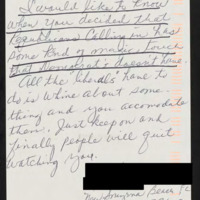 I would like to know
when you decided that
Republicans Calling in has
some kind of magic touch
that Democrat's doesn't have.
All the liberals' have to
do is whine about some-
thing and you accomodate
them. Just keep on and
finally people will quit
watching you.
New Smyrna Beach